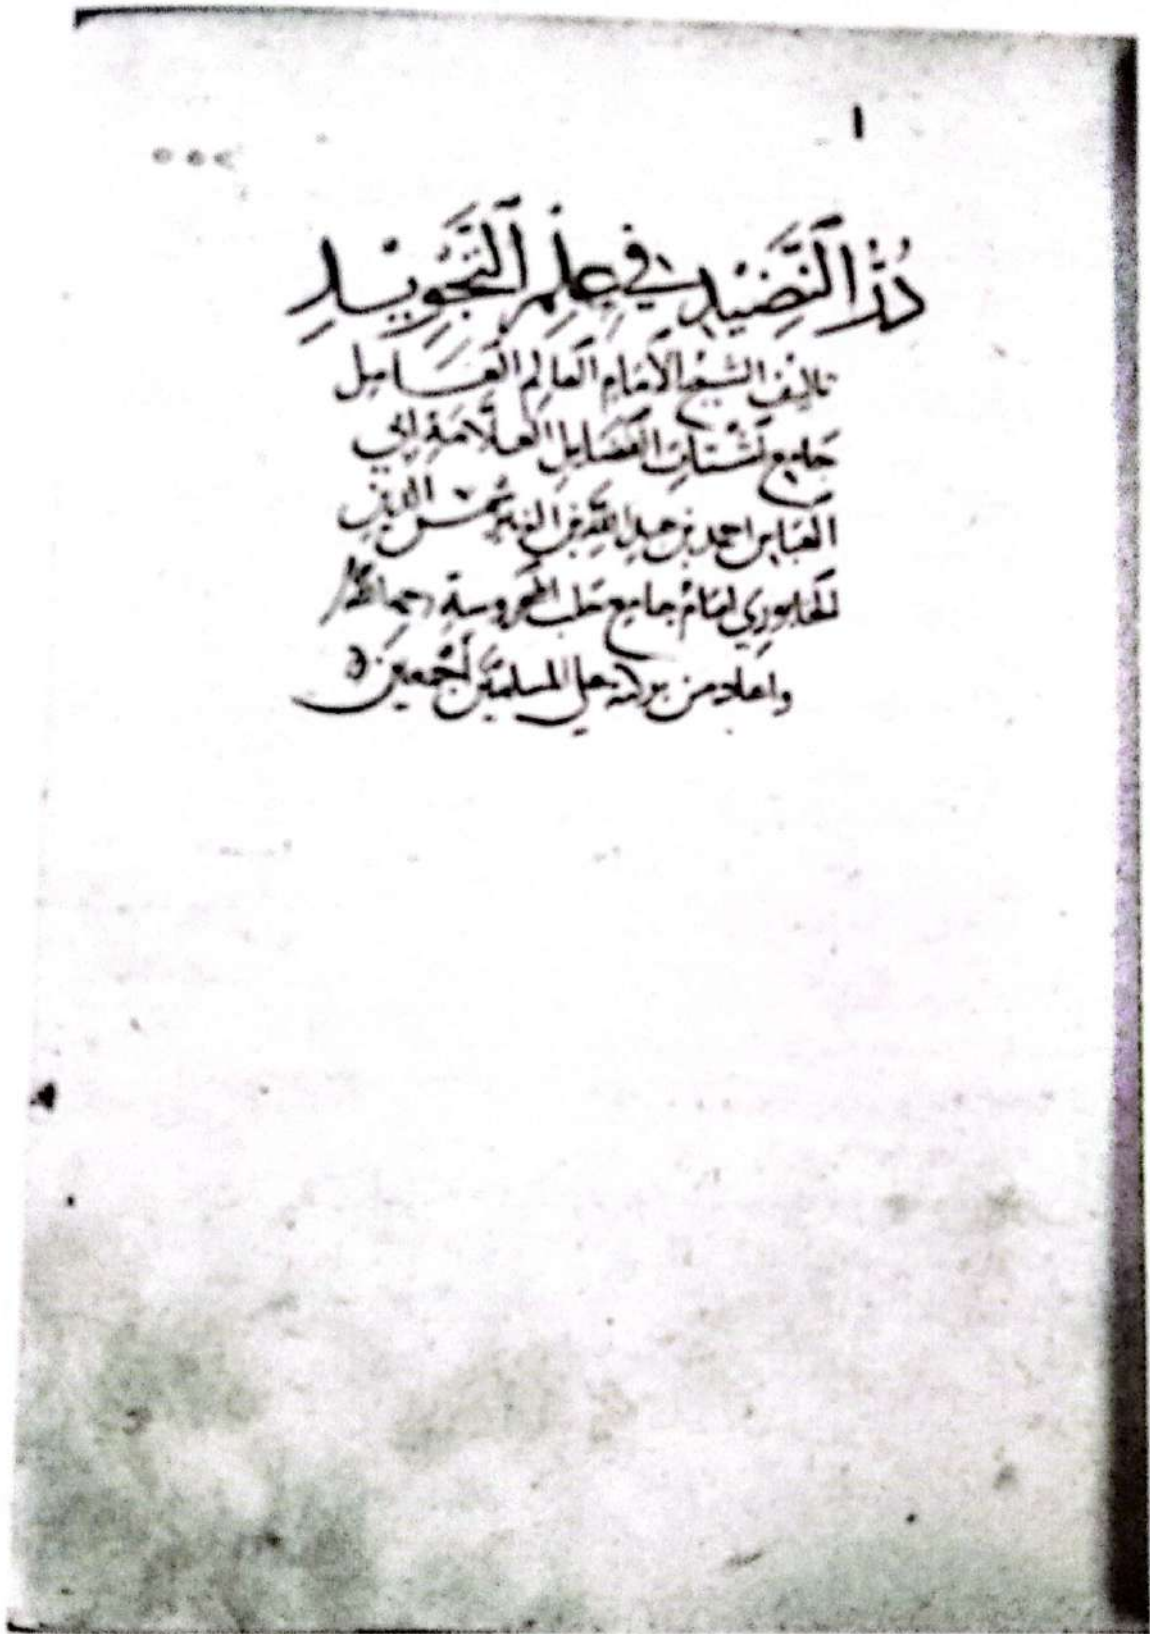 ١
دُرُّ ٱلنَّضِيْدِ فِي عِلْمِ ٱلتَّجْوِيْدِ
تاليف الشيخ الأمام العالم العَامِل
جامع لشتات الفضايل العلّامة ابي
العباس احمد بن عبد الله بن الزبير شمس الدين
الخابوري امام جامع حلب المحروسة رحمه الله
واعاد من بركته على المسلمين أجمعين